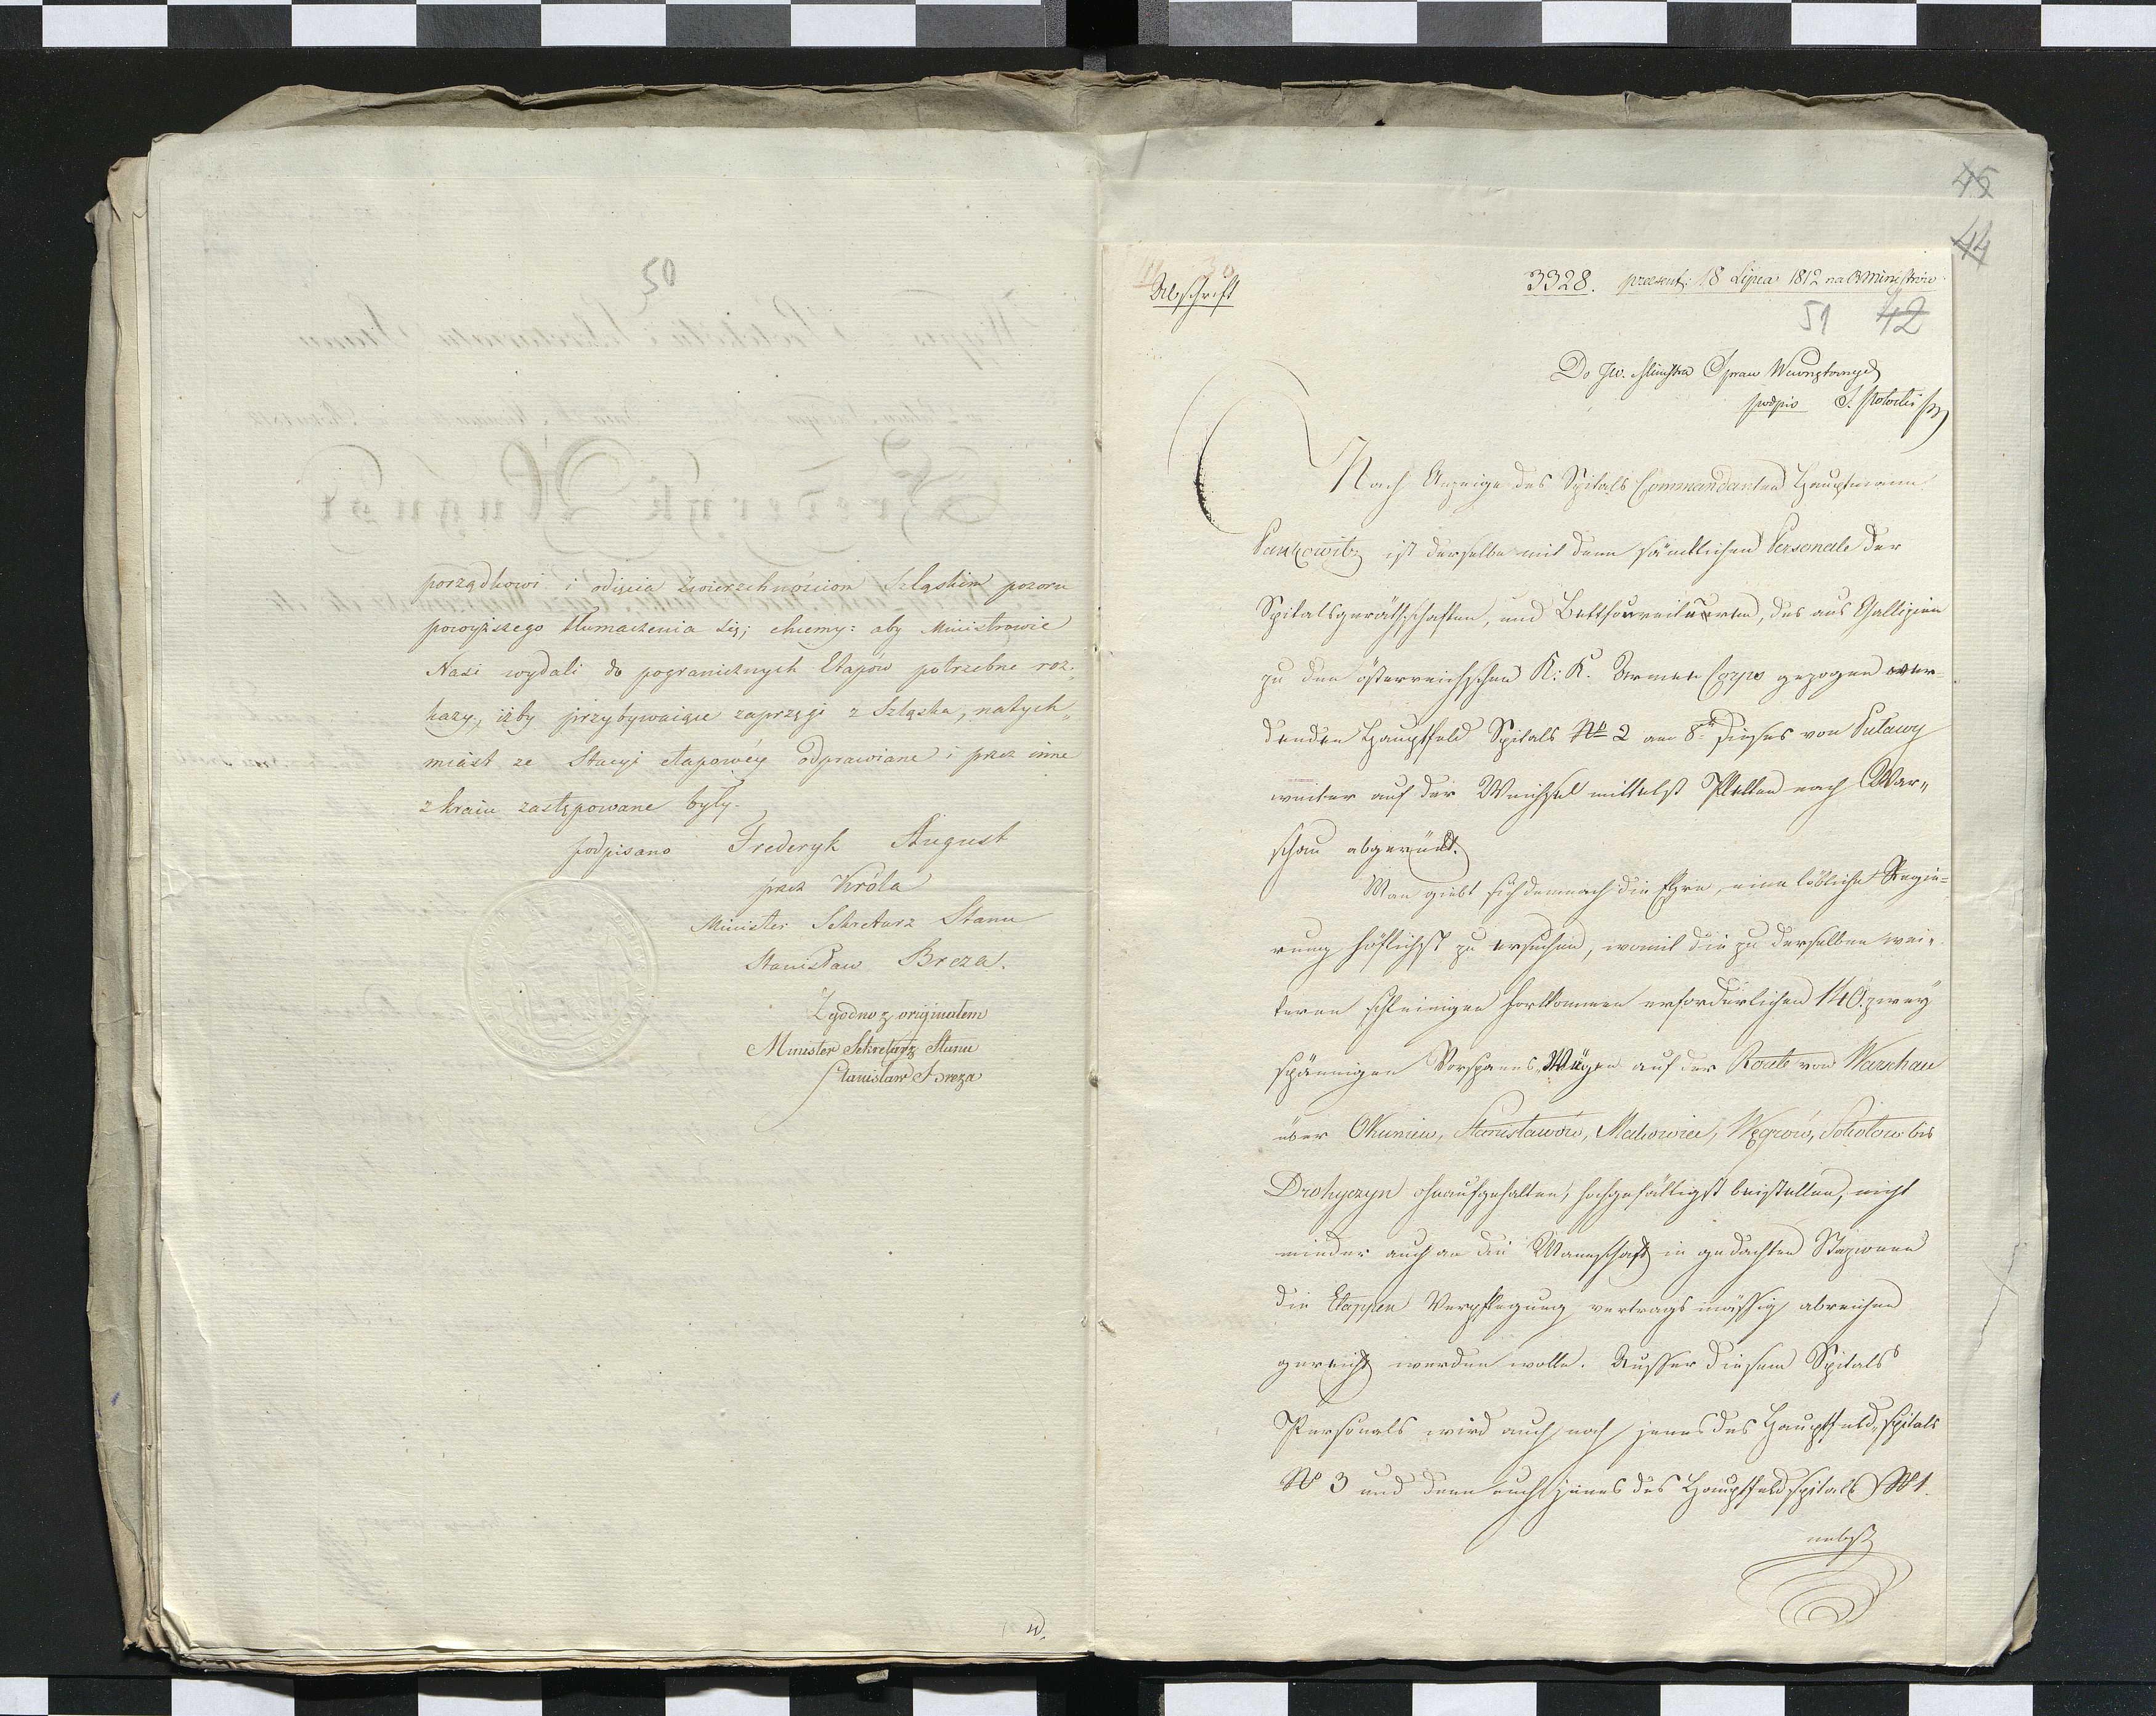 50
porządkowi i odięcia zwierzchnościom Szląskim pozoru
powyższego tłumaczenia się; chcemy: aby Ministrowie
Nasi wydali do pogranicznych Etapów potrzebne roz„
kazy, iżby przybywaiące zaprzęgi z Szląska, natych„
miast ze Stacyi etapowéy odprawiane i przez inne
z kraiu zastępowane były.
podpisano Frederyk August
przez Króla
Minister Sekretarz Stanu
Stanisław Breza.
Zgodno z originałem
Minister Sekretarz Stanu
Stanisław Breza
45
44
Abschrift
3328. praesent: 18 Lipca 1812 na Rministrów
51 42
Do Jw. Ministra Spraw Wewnętrznych
podpis S. Potocki
Nach Anzeige des Spitals Commandanten Hauptmann
Pankowitz ist derselbe mit dem sämtlichen Personale der
Spitalsgeräthschaften, und Bettfournituren, des aus Gallizien
zu dem österreichschen K: K. Armee Corps gezogen wer-
denden Hauptfeld Spitals No 2 am 8n dieses von Puławy
weiter auf der Weichsel mittelst Pletten nach War„
schau abgerückt.
Man giebt sich demnach die Ehre, eine löbliche Regie-
rung höflichst zu ersuchen, womit die zu derselben wei„
teren schleinigen Fortkommen erforderlichen 140. zwey
spännigen Vorspanns Wägen auf der Route von Warschau
über Okuniew, Stanisławów, Makowiec, Węgrów, Sokołow bis
Drohyczyn ohnaufgehalten, hochgefälligst beistellen, nicht
minder auch an die Mannschaft in gedachten Stazionen
die Etappen Verpflegung vertragsmässig abreichen
gereicht werden wolle. Ausser diesem Spitals
Personals wird auch noch jenes des Hauptfeld„spitals
No 3 und dann auch jenes des Hauptfeldspitals No 1.
nebst